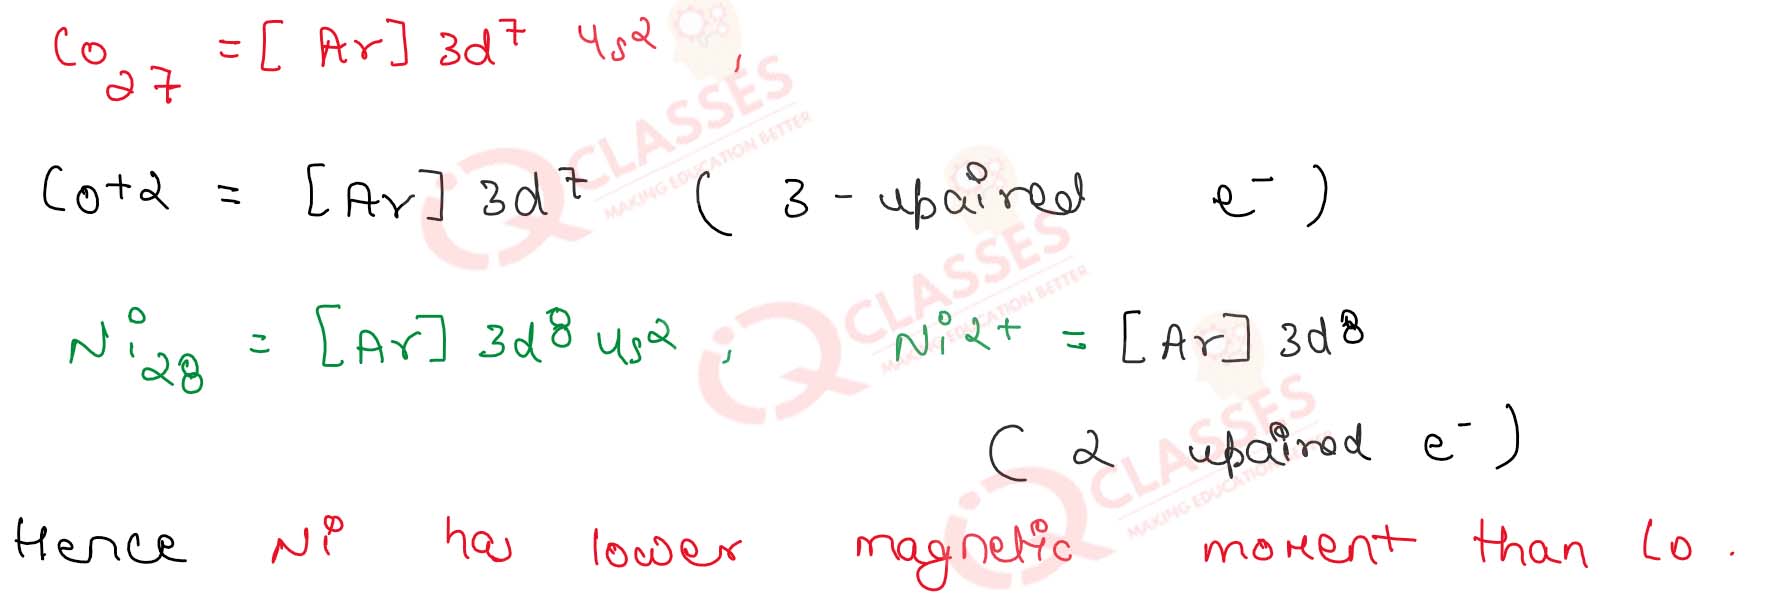 Co₂₇ = [Ar] 3d⁷ 4s² ,
Co+2 = [Ar] 3d⁷ ( 3 - upaired e⁻ )
Ni₂₈ = [Ar] 3d⁸ 4s² , Ni2+ = [Ar] 3d⁸
( 2 upaired e⁻ )
Hence Ni has lower magnetic moment than Co .
CLASSES
MAKING EDUCATION BETTER
CLASSES
MAKING EDUCATION BETTER
CLASSES
MAKING EDUCATION BETTER